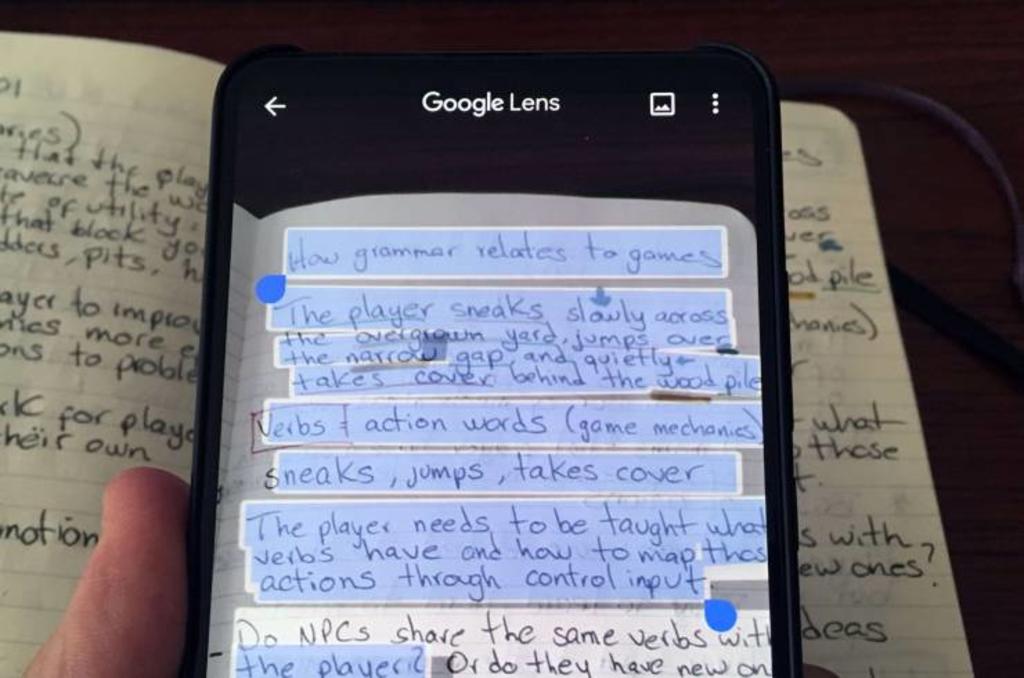 Google Lens
How grammar relates to games
The player sneaks slowly across
the overgrown yard, jumps over
the narrow gap and quietly
takes cover behind the wood pile
Verbs = action words (game mechanics)
sneaks, jumps, takes cover
The player needs to be taught what
verbs have and how to map thos
actions through control input
Do NPCs share the same verbs with
the player? Or do they have new on
that the play
averse the w
of utility.
that block yo
pits, h
ayer to improv
more e
ons to proble
for playe
their own
motion
oss
ver
od pile
hanics)
what
those
s with
ew ones?
deas